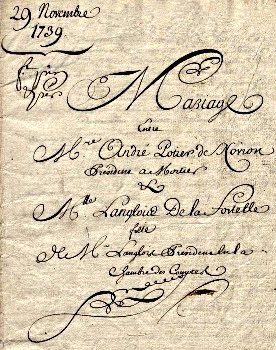 29 Novembre
1739
Mariage
Entre
Mre André Potier de Novion
President a Mortier
&
Mlle Langlois De la Fortelle
fille
de Mr Langlois President en la
Chambre des Comptes